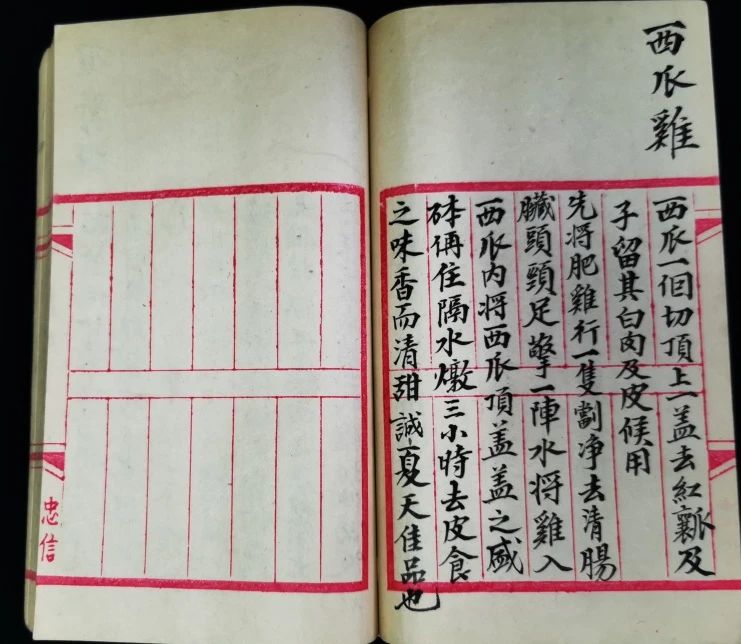 西瓜雞
西瓜一個切頂上一盖去紅瓤及
子留其白肉及皮候用
先將肥雞行一隻劏净去清腸
臟頭頸足擎一陣水將雞入
西瓜內將西瓜頂盖盖之盛
砵再住隔水燉三小時去皮食
之味香而清甜誠夏天佳品也
忠信